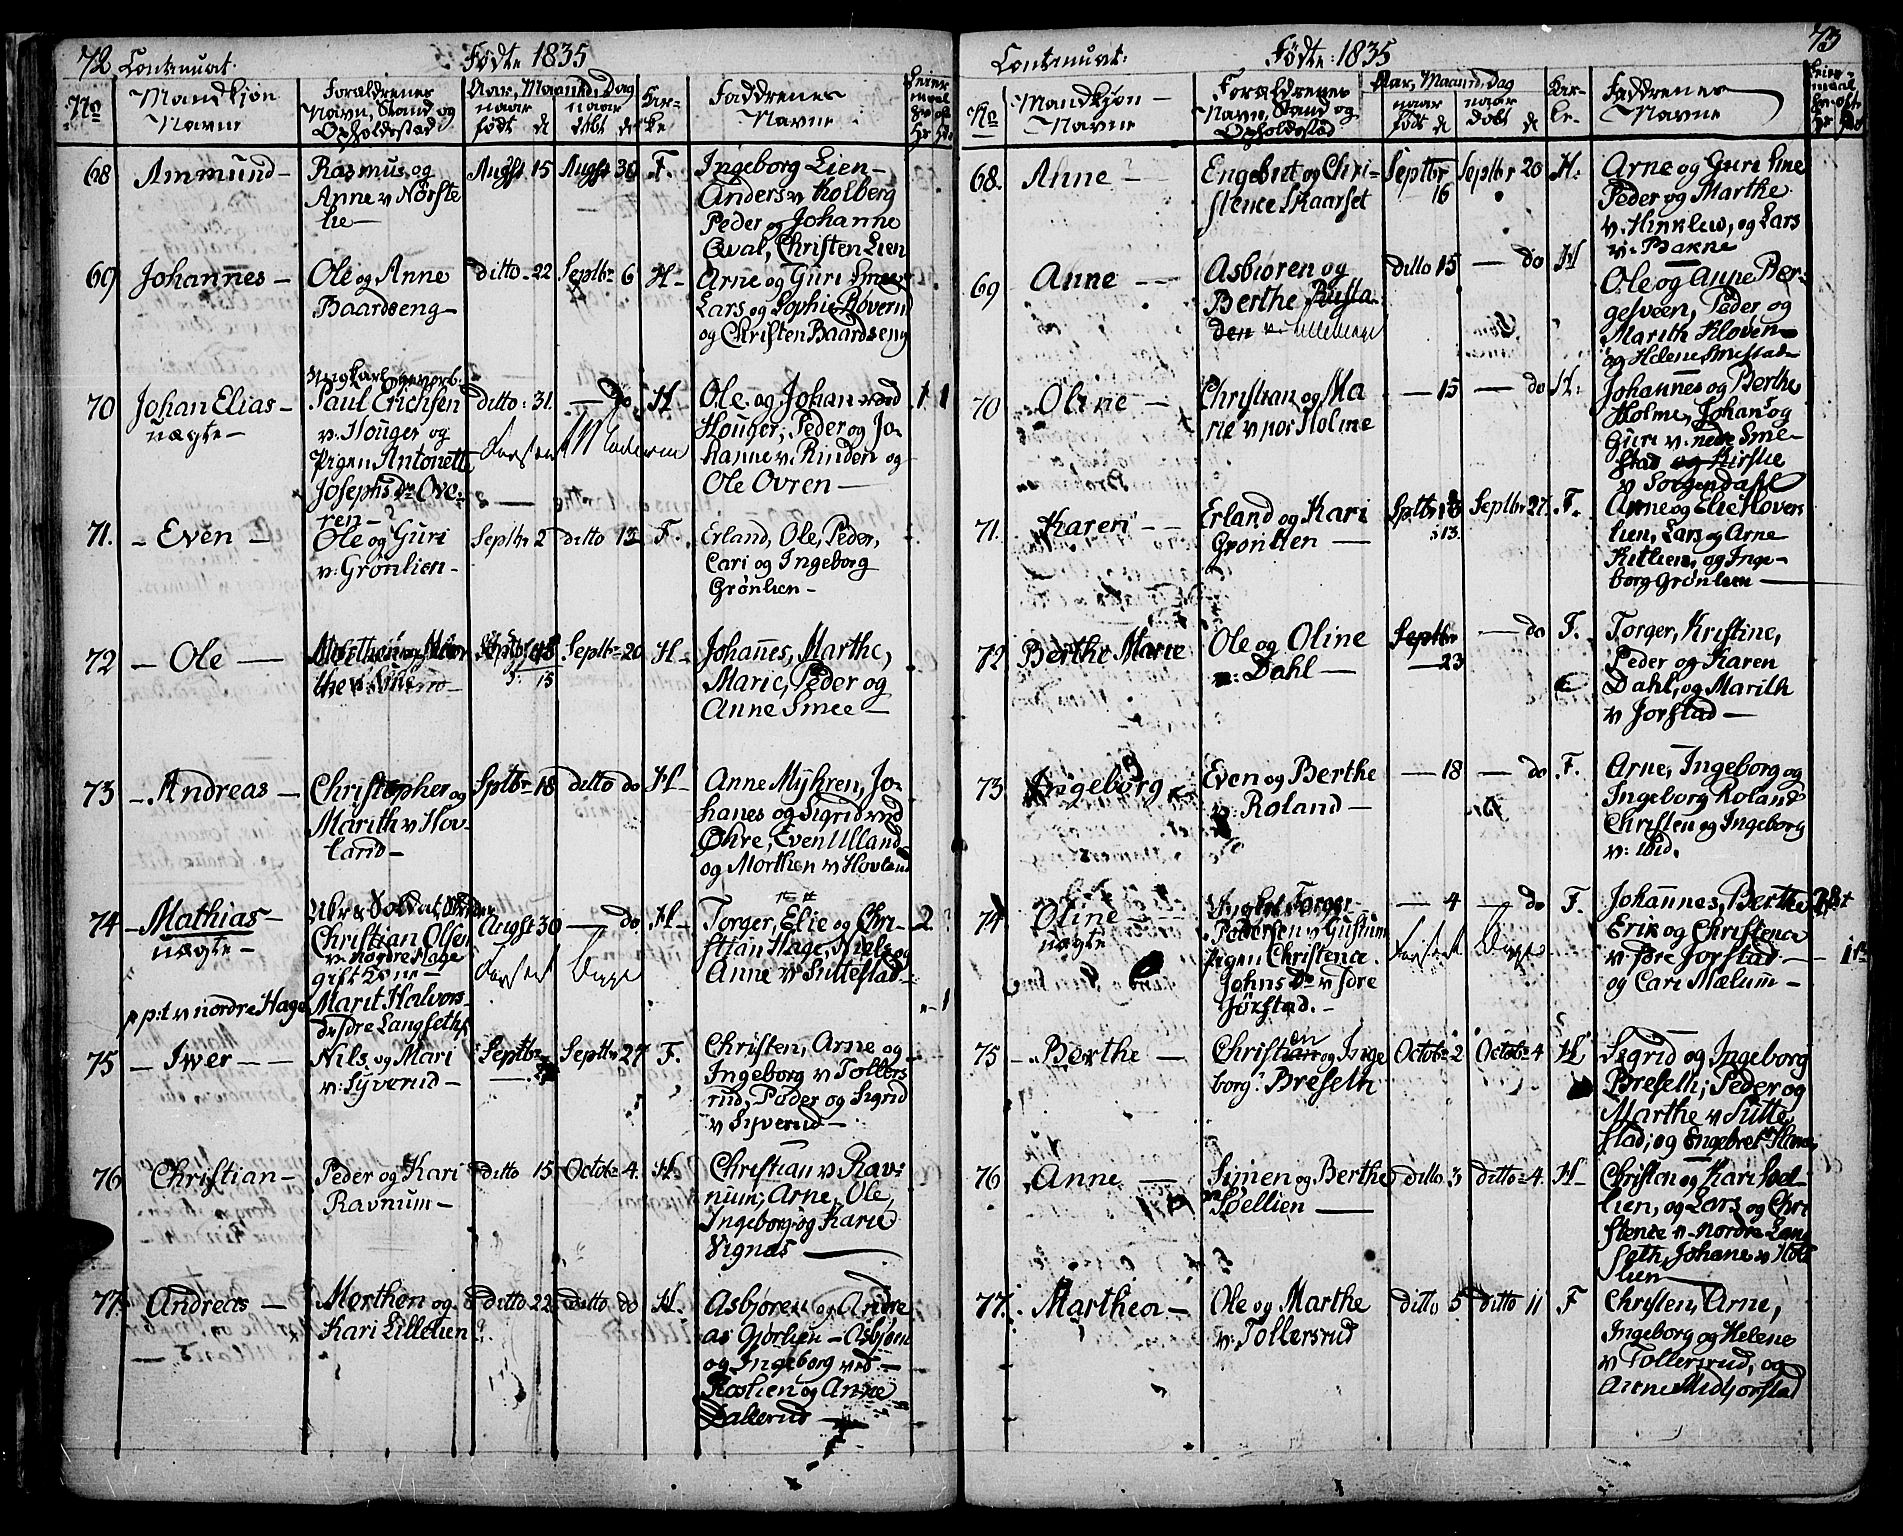 72 Continuat. Fødte 1835
No
Mandkjøn Navne
Forældrenes Navn, Stand og Opholdsstad
Aar, Maaned, Dag
naar født d
naar døbt d
Kirke
Faddrenes Navne
68 Ammund –
Rasmus og
Anne v Nørste
lie –
Augst 15 Augst 30 F.
Ingeborg Lien –
Anders v Kolberg
Peder og Johanne
Qval, Christen Lien
69 Johannes –
Ole og Anne
Baardseng –
ditto – 22 Septbr 6 H –
Arne og Guri Smee
Lars og Sophie Røverud
og Christen Baardseng
70 Johan Elias –
uægte –
Ungkarl
Paul Erichsen
v. Houger og
Pigen Antonette
Josephs Dr Ove-
ren –
ditto: 31. – Do H
Ole og Johan ved
Houger, Peder og Jo-
hanne v. Rinden og
Ole Ovren –
1 1
71. – Even –
Ole og Guri
v: Grønlien –
Septbr 2 ditto 13 F.
Erland, Ole, Peder,
Cari og Ingeborg
Grønlien –
72 – Ole –
Septbr 20 H –
Johanes, Marthe,
Marie, Peder og
Anne Smee –
73 – Andreas –
Christopher og
Marith v Hov-
land –
Sptbr 18 ditto do H –
Anne Myhren, Jo-
hanes og Sigrid ved
Øhre, Even Ulland
og Morthen v Hovland
74 – Mathias –
uægte –
p p: t v nordre Hage
Soldat
Christian Olsen
v. nordre Hage
gift
Marit Halvors-
dr Langseth
Augst 30 – do H –
Torger, Elie og Chri-
stian Hage, Niels og
Anne v Suttestad –
2
– 1
75 – Iwer –
Nils og Mari
v: Syverud –
Septbr Septbr 27 F.
Christen, Arne og
Ingeborg v Tollers
rud, Peder og Sigrid
v Syverud –
76 Christian –
Peder og Kari
Ravnum –
ditto 15 Octobr 4. H.
Christian v Rav-
num; Arne, Ole,
Ingeborg og Karie
Vignæs –
77. Andreas –
Morthen og
Kari Lillelien
ditto 22 ditto do H.
Asbjøren og Andre
as Gjørlien – Asbjøren
og Ingeborg ved –
Roslien og Anne
Dallerud –
Continuat. Fødte: 1835 73
No
Mandkjøn – Navne
Forældrenes Navn, Stand og Opholdstad
Aar, Maaned, Dag
naar født d
naar døbt d
Kirke
Faddrenes Navne
68. Anne –
Engebret og Chri-
stence Skaarset
Septbr 16 Septbr 20 H:
Arne og Guri Smee
Peder og Marthe
v. Hinklew, og Lars
v. Bakne
69 Anne –
Asbiøren og
Berthe Rusta
den
ditto 15 – do H
Ole og Anne Ber-
gesveen, Peder, og
Marith Kloven
og Helene Smestad
70 Oline –
Christian og Ma
rie v nor Holme
– 15 – do H:
Johannes og Berthe
Holme, Johan og
Guri v: nedre Sme-
stad og Kirstie
v Sorgendahl
71. Karen –
Erland og Kari
Grønlien –
Sptbr 13. Septbr 27. F.
Arne og Elie Hoven
lien, Lars og Arne
Kitlien, og Inge-
borg Grønlien –
72 Berthe Marie
Ole og Oline
v: Dahl –
Septbr – 23 – do F.
Torger, Kristine,
Peder og Karen
Dahl, og Marith
v Jorstad –
73 Ingeborg –
Even og Berthe
v: Roland –
– 18 – do F.
Arne, Ingeborg og
Ingeborg Roland
Christen og Ingeborg
v: ibid.
74 Oline –
uægte
Torger
Pedersen v
Pigen Christence
Johns Dr v Idre
Jørstad. –
– 4 – do F.
Johannes, Berthe
Erik og Christence
v: Idre Jorstad –
og Cari Mælum –
75 – Berthe –
Christen og Inge
borg: Breseth
Octobr 2 Octobr 4 H
Segrid og Ingeborg
Breseth; Peder og
Marthe v Sutte
stad; og Engebret
76 Anne –
Simen og Berthe
v Sellien –
ditto 3 ditto 4. H –
Christen og Kari Sæl-
lien, og Lars og Chri
stence v nordre Lang
seth, Johane v Hol
lien –
77. Marthea –
Ole og Marthe
v: Tollersrud
ditto 5 ditto 11 F
Christen, Arne,
Ingeborg og Helene
v Tollersrud, og
Arne Midjorstad